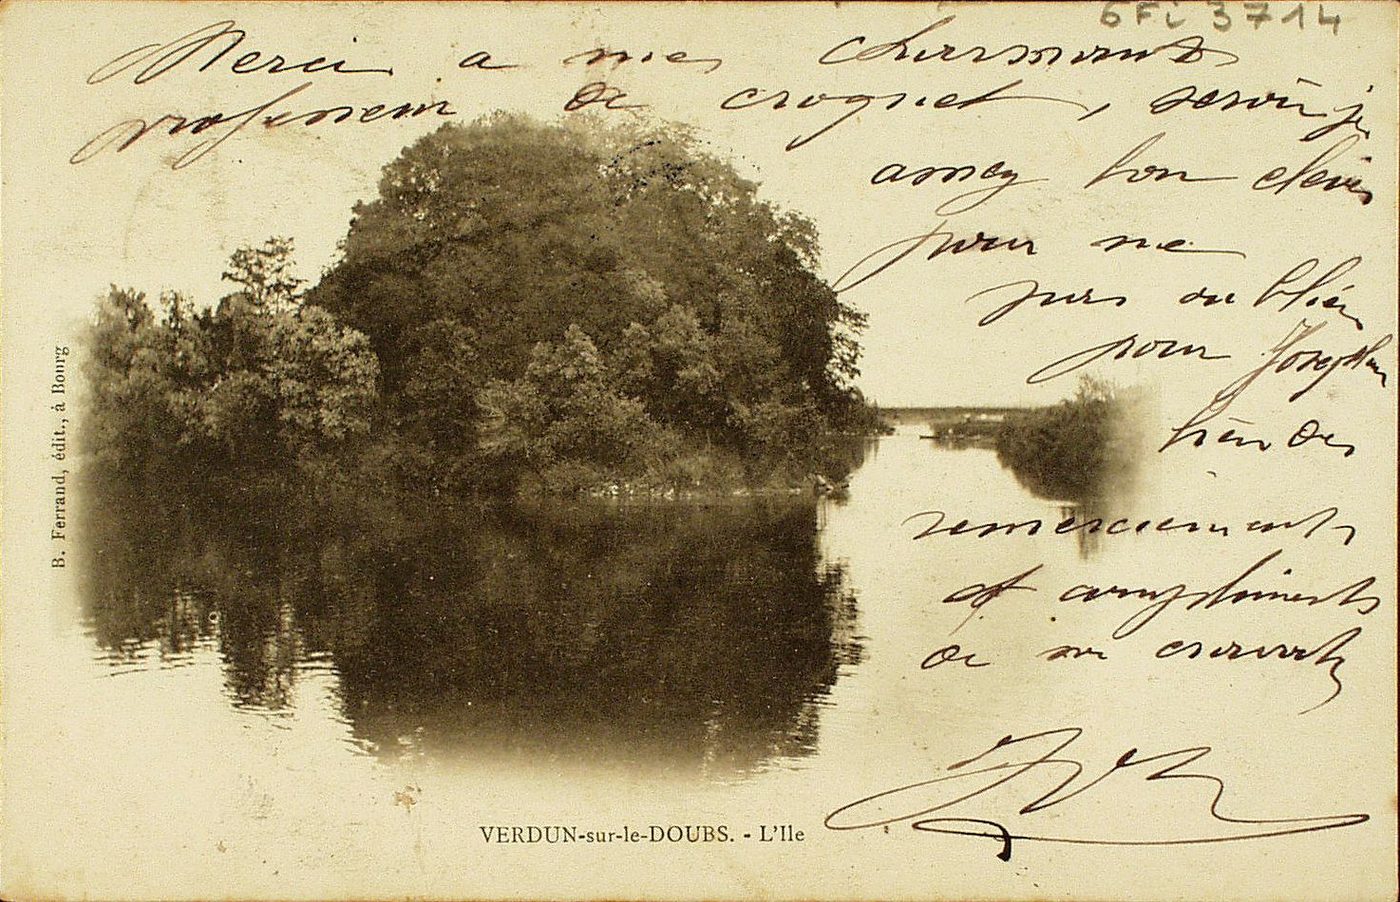 6Fi 3714
Merci a mes charmants
professeur de croquet, serai je
assez bon élève
pour ne
pas oublier
pour Joseph
bien des
remerciements
et compliments
de
B. Ferrand, édit., à Bourg
VERDUN-sur-le-DOUBS. - L'Ile